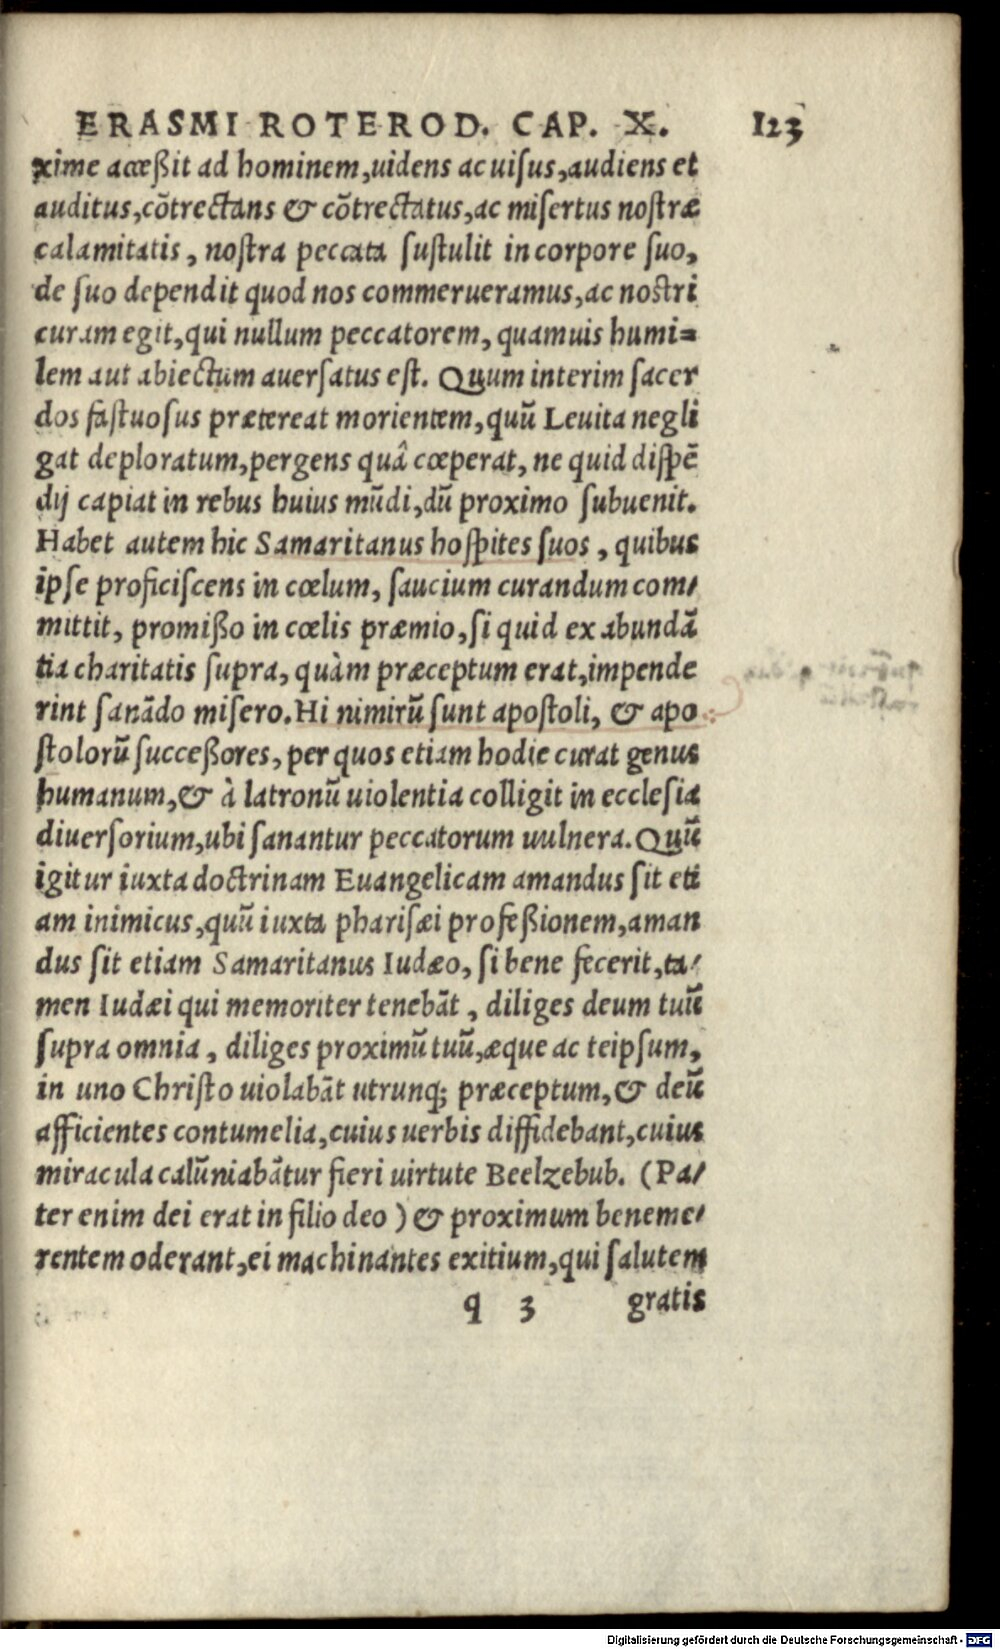 ERASMI ROTEROD. CAP. X. 123
xime acceßit ad hominem,uidens ac uisus,audiens et
auditus,cõtrectans & cõtrectatus,ac misertus nostræ
calamitatis, nostra peccata sustulit in corpore suo,
de suo dependit quod nos commerueramus,ac nostri
curam egit,qui nullum peccatorem, quamuis humi=
lem aut abiectum auersatus est. Quum interim sacer
dos fastuosus prætereat morientem,quũ Leuita negli
gat deploratum,pergens quâ cœperat, ne quid dispẽ
dij capiat in rebus huius mũdi,dũ proximo subuenit.
Habet autem hic Samaritanus hospites suos, quibus
ipse proficiscens in cœlum, saucium curandum com/
mittit, promißo in cœlis præmio,si quid ex abundã
tia charitatis supra, quàm præceptum erat,impende
rint sanãdo misero.Hi nimirũ sunt apostoli, & apo
stolorũ succeßores, per quos etiam hodie curat genus
humanum,& à latronũ uiolentia colligit in ecclesia
diuersorium,ubi sanantur peccatorum uulnera.Quũ
igitur iuxta doctrinam Euangelicam amandus sit eti
am inimicus,quũ iuxta pharisæi profeßionem,aman
dus sit etiam Samaritanus Iudæo, si bene fecerit,ta/
men Iudæi qui memoriter tenebãt, diliges deum tuũ
supra omnia, diliges proximũ tuũ,æque ac teipsum,
in uno Christo uiolabãt utrunq; præceptum,& deũ
afficientes contumelia,cuius uerbis diffidebant,cuius
miracula calũniabãtur fieri uirtute Beelzebub. (Pa/
ter enim dei erat in filio deo) & proximum beneme/
rentem oderant,ei machinantes exitium,qui salutem
q 3 gratis
Digitalisierung gefördert durch die Deutsche Forschungsgemeinschaft - DFG